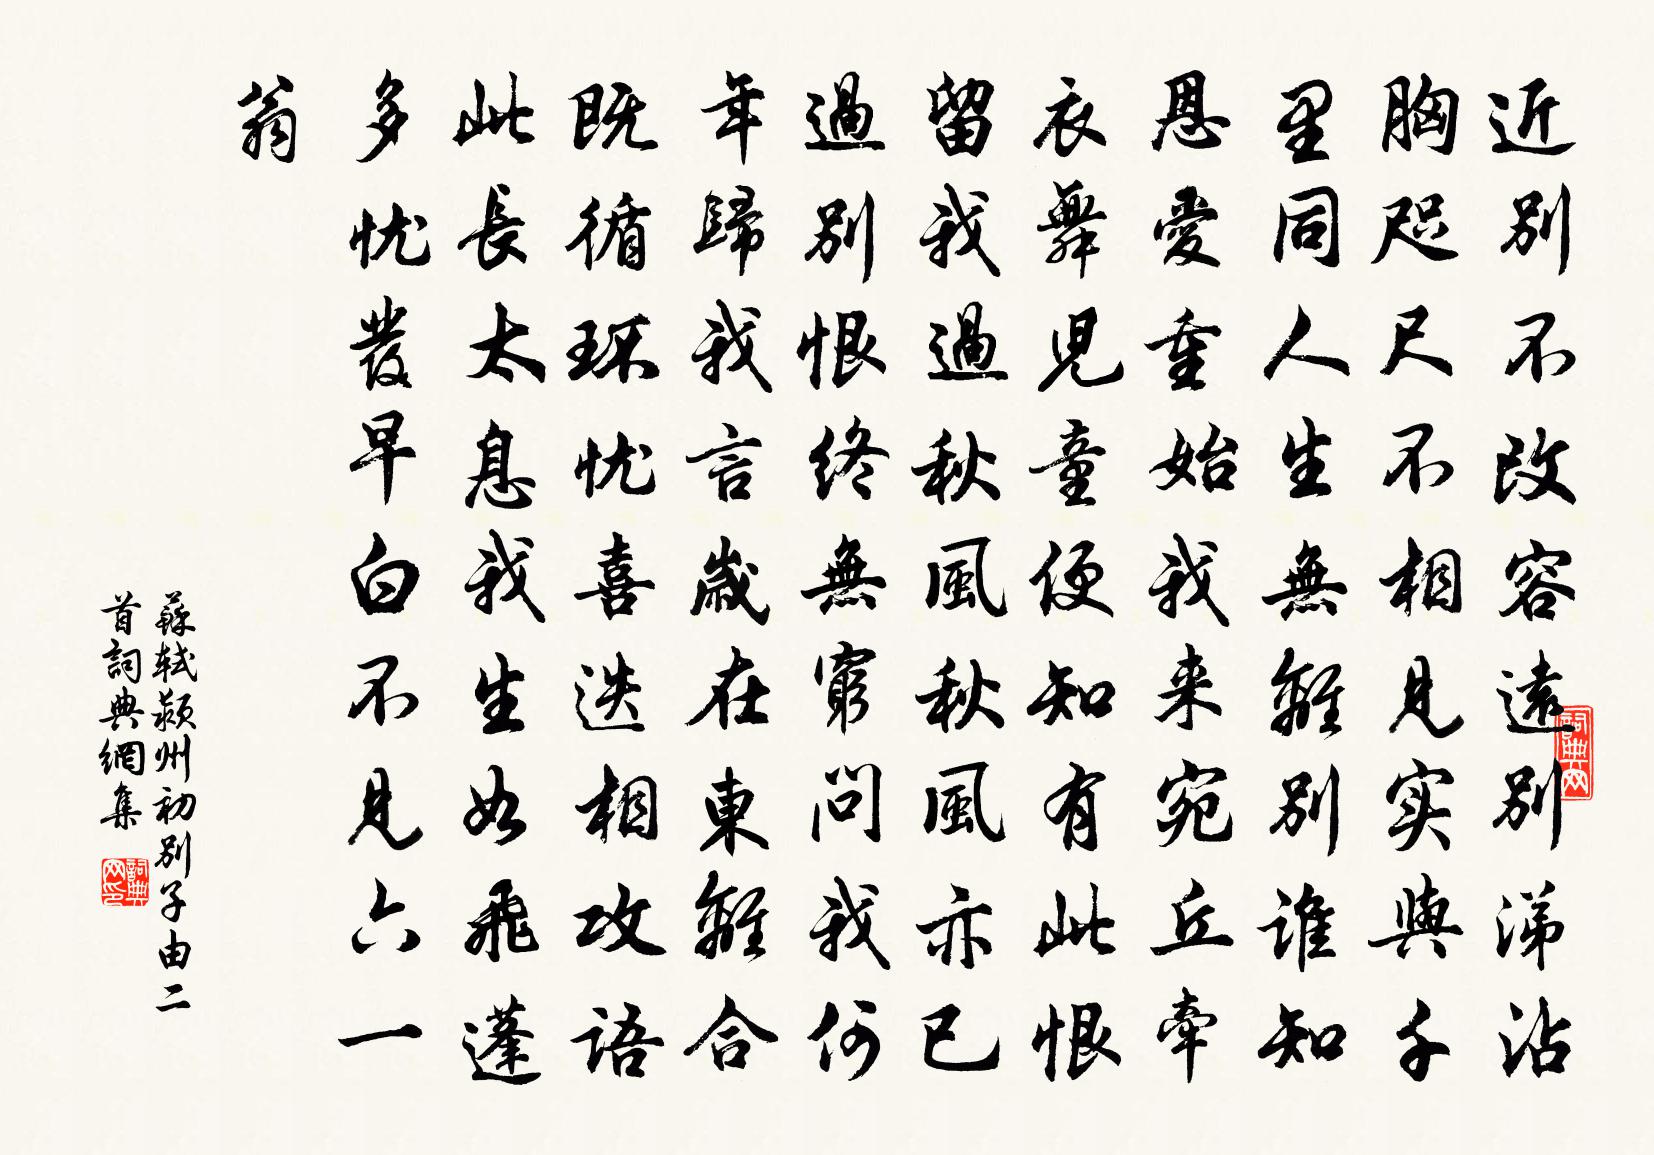 近別不改容遠別涕沾
胸咫尺不相見实與千
里同人生無離別誰知
恩愛重始我来宛丘牽
衣舞児童便知有此恨
留我過秋風秋風亦已
過別恨終無窮問我何
年歸我言歲在東離合
既循环忧喜迭相攻語
此長太息我生如飛蓬
多忧發早白不見六一
翁
蘇軾颍州初別子由二
首詞典網集
詞典网
詞典网印